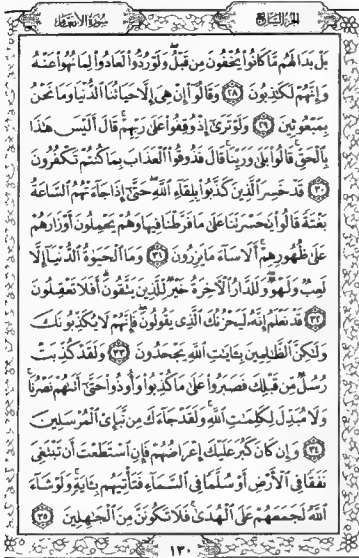 الجزء السابع
سورة الأنعام
بَلْ بَدَا لَهُم مَّا كَانُوا۟ يُخْفُونَ مِن قَبْلُ ۖ وَلَوْ رُدُّوا۟ لَعَادُوا۟ لِمَا نُهُوا۟ عَنْهُ
وَإِنَّهُمْ لَكَٰذِبُونَ ٢٨ وَقَالُوٓا۟ إِنْ هِىَ إِلَّا حَيَاتُنَا ٱلدُّنْيَا وَمَا نَحْنُ
بِمَبْعُوثِينَ ٢٩ وَلَوْ تَرَىٰٓ إِذْ وُقِفُوا۟ عَلَىٰ رَبِّهِمْ ۚ قَالَ أَلَيْسَ هَٰذَا
بِٱلْحَقِّ ۚ قَالُوا۟ بَلَىٰ وَرَبِّنَا ۚ قَالَ فَذُوقُوا۟ ٱلْعَذَابَ بِمَا كُنتُمْ تَكْفُرُونَ
٣٠ قَدْ خَسِرَ ٱلَّذِينَ كَذَّبُوا۟ بِلِقَآءِ ٱللَّهِ ۖ حَتَّىٰٓ إِذَا جَآءَتْهُمُ ٱلسَّاعَةُ
بَغْتَةً قَالُوا۟ يَٰحَسْرَتَنَا عَلَىٰ مَا فَرَّطْنَا فِيهَا وَهُمْ يَحْمِلُونَ أَوْزَارَهُمْ
عَلَىٰ ظُهُورِهِمْ ۚ أَلَا سَآءَ مَا يَزِرُونَ ٣١ وَمَا ٱلْحَيَوٰةُ ٱلدُّنْيَآ إِلَّا
لَعِبٌ وَلَهْوٌ ۖ وَلَلدَّارُ ٱلْءَاخِرَةُ خَيْرٌ لِّلَّذِينَ يَتَّقُونَ ۗ أَفَلَا تَعْقِلُونَ
٣٢ قَدْ نَعْلَمُ إِنَّهُۥ لَيَحْزُنُكَ ٱلَّذِى يَقُولُونَ ۖ فَإِنَّهُمْ لَا يُكَذِّبُونَكَ
وَلَٰكِنَّ ٱلظَّٰلِمِينَ بِـَٔايَٰتِ ٱللَّهِ يَجْحَدُونَ ٣٣ وَلَقَدْ كُذِّبَتْ
رُسُلٌ مِّن قَبْلِكَ فَصَبَرُوا۟ عَلَىٰ مَا كُذِّبُوا۟ وَأُوذُوا۟ حَتَّىٰٓ أَتَىٰهُمْ نَصْرُنَا ۚ
وَلَا مُبَدِّلَ لِكَلِمَٰتِ ٱللَّهِ ۚ وَلَقَدْ جَآءَكَ مِن نَّبَإِى۟ ٱلْمُرْسَلِينَ
٣٤ وَإِن كَانَ كَبُرَ عَلَيْكَ إِعْرَاضُهُمْ فَإِنِ ٱسْتَطَعْتَ أَن تَبْتَغِىَ
نَفَقًا فِى ٱلْأَرْضِ أَوْ سُلَّمًا فِى ٱلسَّمَآءِ فَتَأْتِيَهُم بِـَٔايَةٍ ۚ وَلَوْ شَآءَ
ٱللَّهُ لَجَمَعَهُمْ عَلَى ٱلْهُدَىٰ ۚ فَلَا تَكُونَنَّ مِنَ ٱلْجَٰهِلِينَ ٣٥
١٣٠